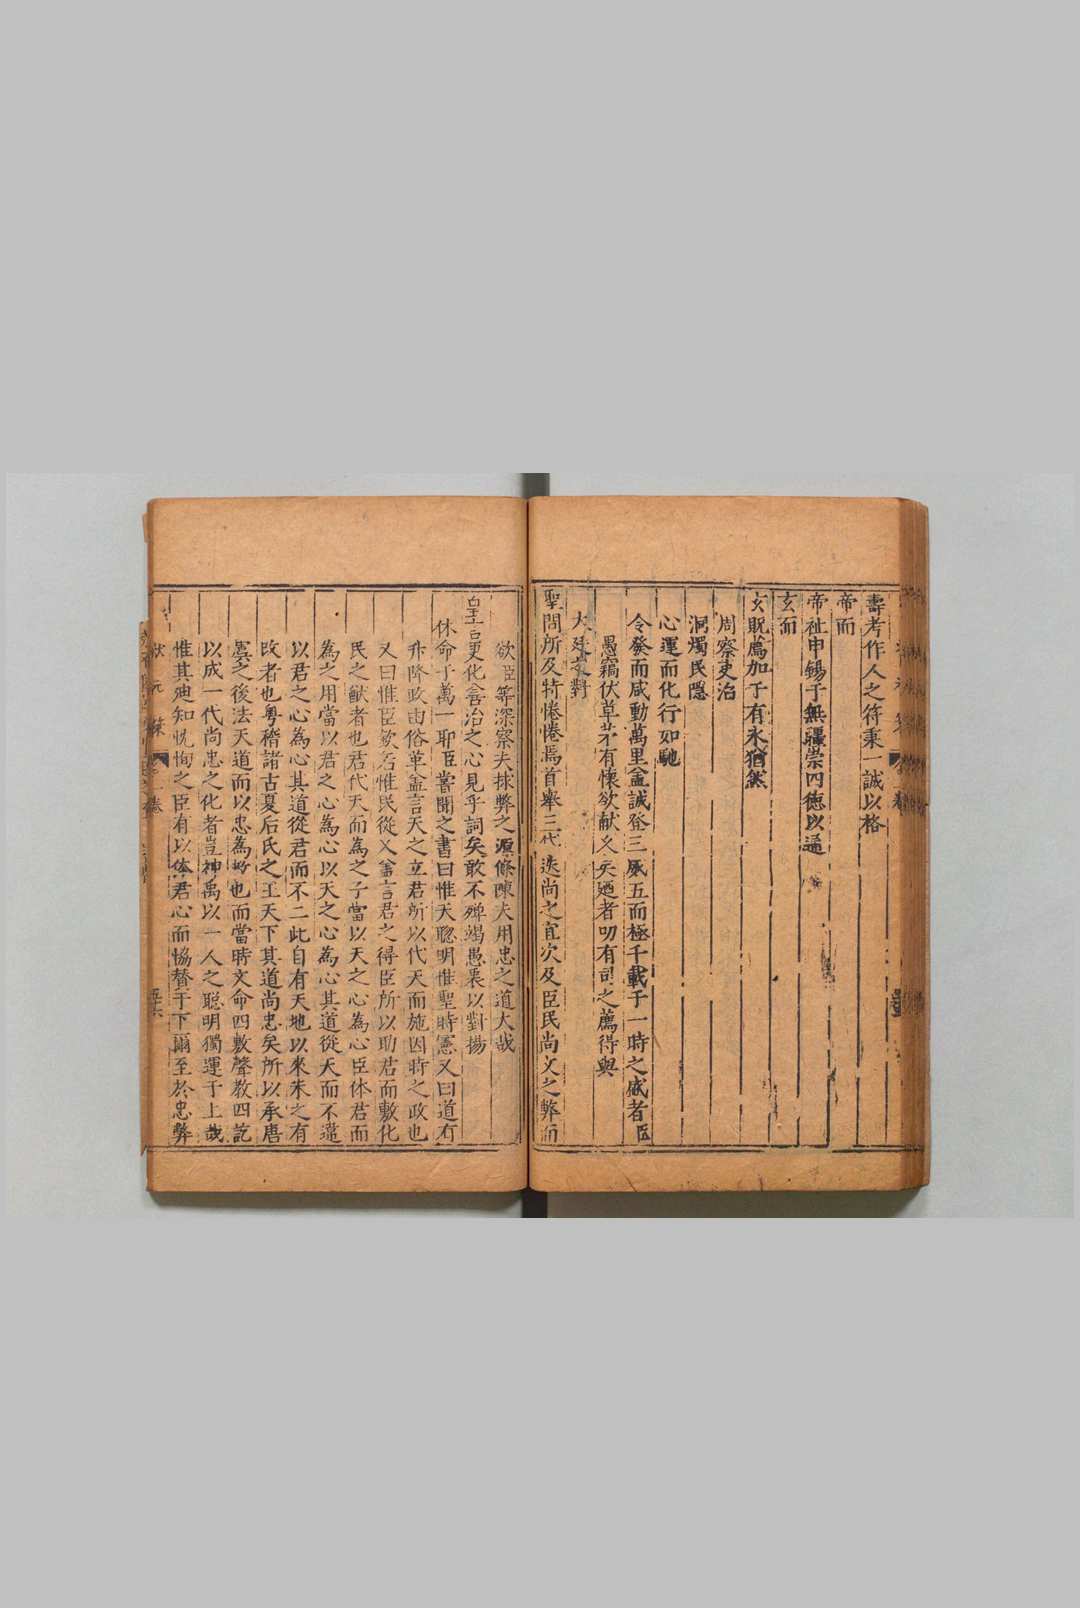 壽考作人之符秉一誠以格
帝而
帝祉申錫于無疆崇四德以通
玄而
玄貺薦加于有永猶然
周察吏治
洞燭民隱
心運而化行如馳
令發而咸動萬里金誠登三咸五而極千載于一時之盛者臣
愚竊伏草茅有懷欲献久矣廼者叨有司之薦得與
大廷之對
聖問所及特惓惓焉首舉三代迭尚之宜次及臣民尚文之弊而
欲臣等深察夫捄弊之源條陳夫用忠之道大哉
皇言更化善治之心見乎詞矣敢不殫竭愚衷以對揚
休命于萬一耶臣甞聞之書曰惟天聰明惟聖時憲又曰道有
升降政由俗革盖言天之立君所以代天而施因時之政也
又曰惟臣欽若惟民從乂盖言君之得臣所以助君而敷化
民之猷者也君代天而為之子當以天之心為心臣体君而
為之用當以君之心為心以天之心為心其道從天而不違
以君之心為心其道從君而不二此自有天地以來未之有
改者也粤稽諸古夏后氏之王天下其道尚忠矣所以承唐
虞之後法天道而以忠為教也而當時文命四敷聲教四訖
以成一代尚忠之化者豈神禹以一人之聰明獨運于上哉
惟其迪知忱恂之臣有以体君心而協賛于下爾至於忠弊
狀元策